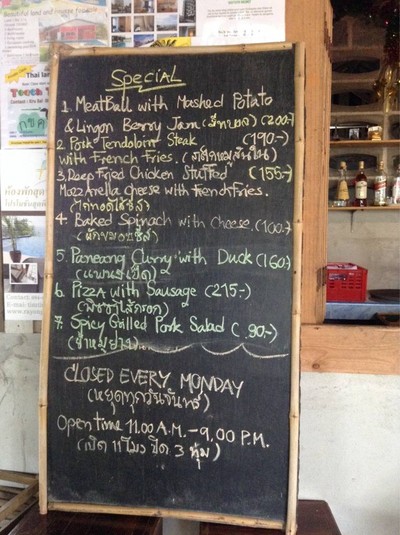 SPECIAL
1. MeatBall with Mashed Potato
& Lingon Berry Jam (มีทบอล) (200.-)
2. Pork Tendoloin Steak (190.-)
with French Fries. (สเต็กหมูสันใน)
3. Deep Fried Chicken Stuffed (155.-)
Mozzarella cheese with French Fries.
(ไก่ทอดไส้ชีส)
4. Baked Spinach with Cheese. (100.-)
(ผักขมอบชีส)
5. Paneang Curry with Duck (160.-)
(แพนงเป็ด)
6. Pizza with Sausage (215.-)
(พิซซ่าไส้กรอก)
7. Spicy Grilled Pork Salad (90.-)
(ยำหมูย่าง)
CLOSED EVERY MONDAY
(หยุดทุกวันจันทร์)
Open time 11.00 A.M. - 9.00 P.M.
(เปิด 11 โมง ปิด 3 ทุ่ม)